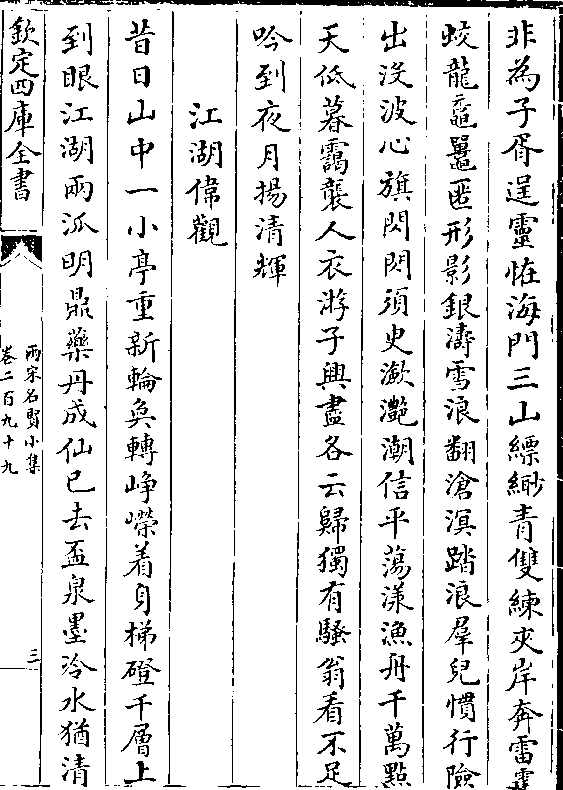 非為子胥逞靈怪海門三山縹緲青雙練夾岸奔雷霆
蛟龍黿鼉匿形影銀濤雪浪翻滄溟踏浪羣兒慣行險
出沒波心旗閃閃須臾瀲灔潮信平蕩漾漁舟千萬點
天低暮靄襲人衣游子興盡各云歸獨有騷翁看不足
吟到夜月揚清輝
江湖偉觀
昔日山中一小亭重新輪奐轉崢嶸着身梯磴千層上
到眼江湖兩派明鼎藥丹成仙已去盃泉墨冷水猶清
欽定四庫全書
兩宋名賢小集
卷二百九十九
三